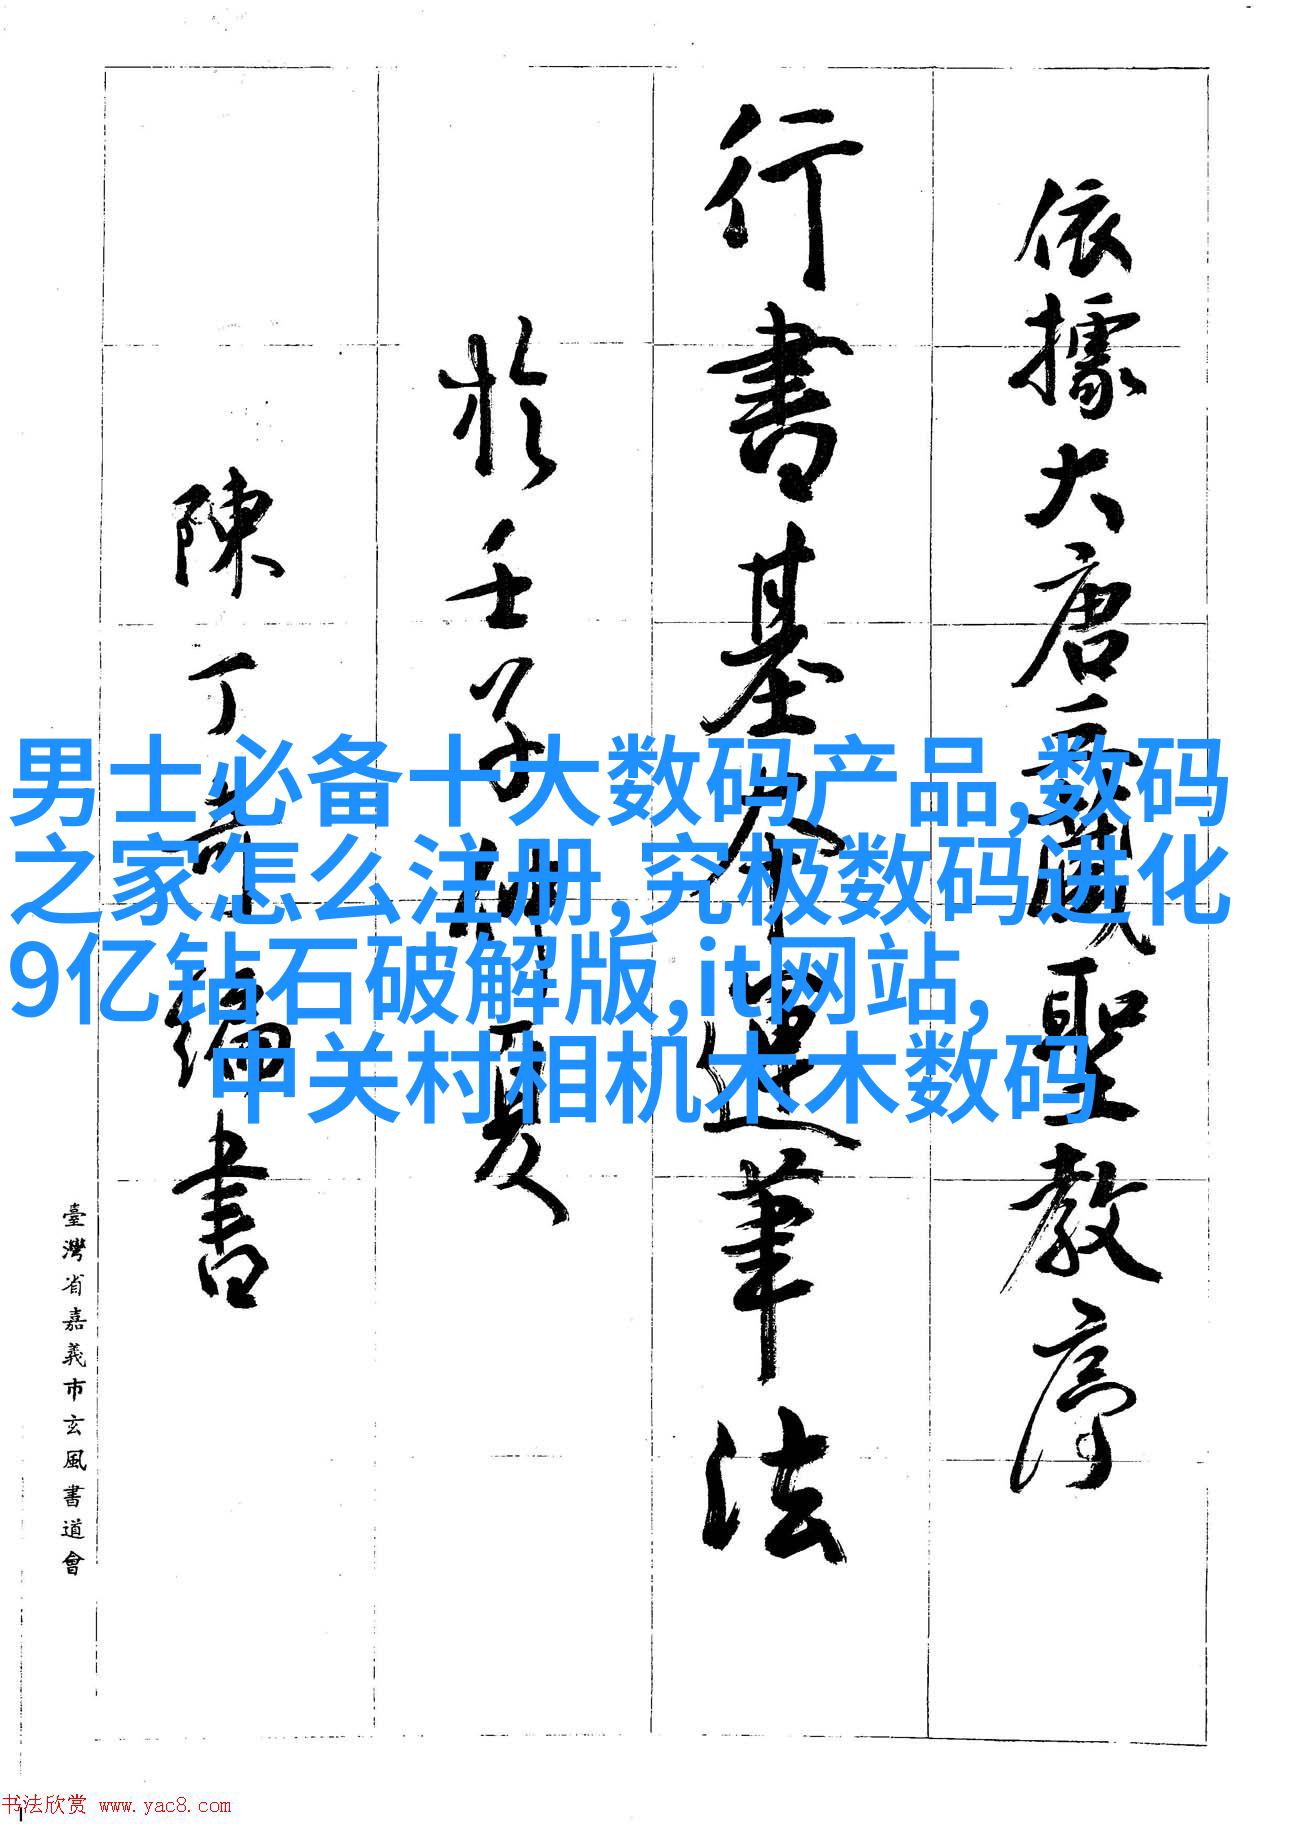 依據大唐三藏聖教序
行書基本運筆法
於壬子仲夏
陳丁奇編書
臺灣省嘉義市玄風書道會
男士必备十大数码产品,数码
之家怎么注册,究极数码进化
9亿钻石破解版,it网站,
中关村相机木木数码
书法欣赏 www.yac8.com